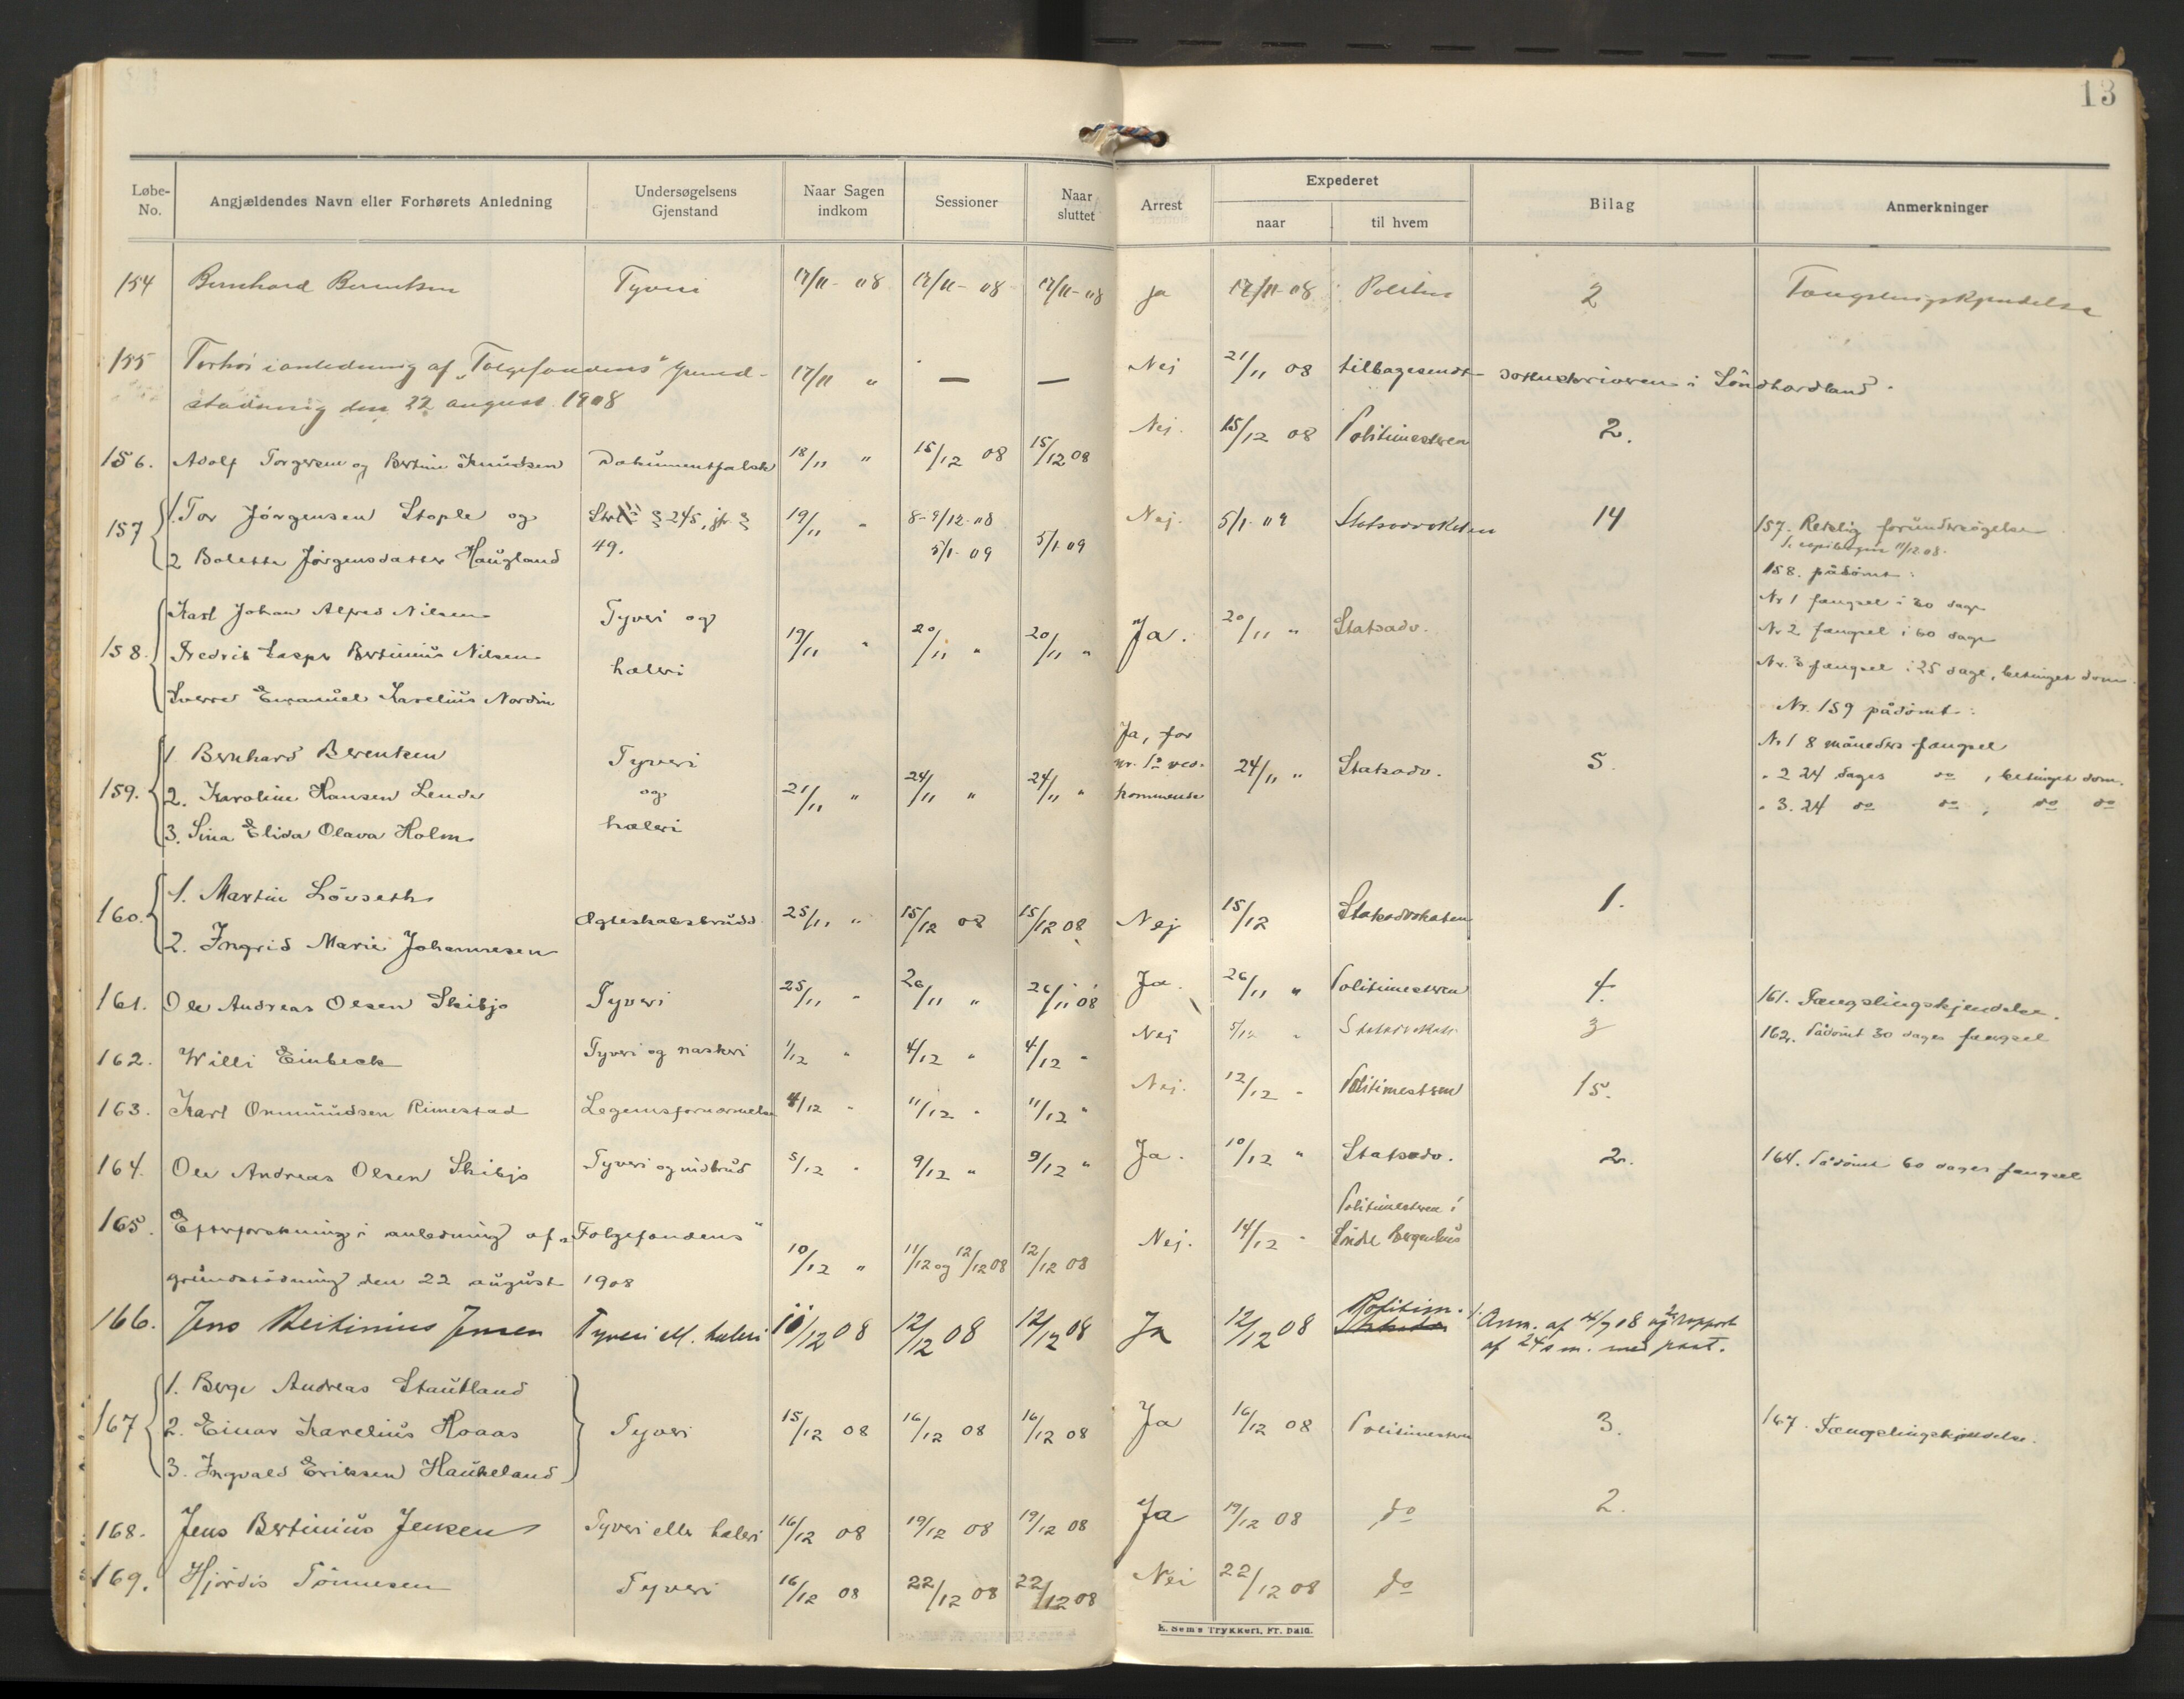 13
Løbe-No. Angjældendes Navn eller Forhørets Anledning Undersøgelsens Gjenstand Naar Sagen indkom Sessioner Naar sluttet Arrest Expederet naar til hvem Bilag Anmerkninger
154 Bernhard Berentsen Tyveri 17/11 - 08 17/11 - 08 17/11 - 08 Ja 17/11 - 08 Politim 2 Fængslingskjendelse
155 Forhør i anledning af "Folgefondens" grund- 17/11 " — — Nej 21/11 08 tilbagesendt sorenskriveren i Söndhordland.
stødning den 22 august 1908
156. Adolf Torgersen og Bertine Knudsen Dokumentfalsk 18/11 " 15/12 08 15/12 08 Nej. 15/12 08 Politimesteren 2.
157 1. Tor Jörgensen Stople og § 245, jfr. § 19/11 " 8-9/12 08 Nej. 5/1 09 Statsadvokaten 14 157. Retslig forundersøgelse
2 Bolette Jörgensdatter Haugland 49. 5/1 09 5/1 09 11/12 08.
158. påDömt:
158. Karl Johan Alfred Nilsen Tyveri og 19/11 " 20/11 " 20/11 " Ja. 20/11 " Statsadv. Nr 1 fængsel i 30 dage
Fredrik Kasper Bertinius Nilsen hæleri Nr 2 fængsel i 60 dage
Sverre Emanuel Karelius Nordin Nr. 3 fængsel i 25 dage, betinget dom.
Nr. 159 pådömt:
159. 1 Bernhard Berentsen Tyveri Ja, for Nr 1 8 måneders fængsel
2. Karoline Hansen Lende og 21/11 " 24/11 " 24/11 " nr. 1s ved- 24/11 " Statsadv. 5. " 2 24 dages do, betinget dom.
3. Sina Elida Olava Holm hæleri kommende " 3. 24 do do, do do
160. 1. Martin Lövseth Ægteskabsbrudd 25/11 " 15/12 08 15/12 08 Nej 15/12 Statsadvokaten 1.
2. Ingrid Marie Johannesen
161. Ole Andreas Olsen Skibjo Tyveri 25/11 " 26/11 " 26/11 08 Ja. 26/11 " Politimesteren 4. 161. Fængslingskjendelse.
162. Willi Einbeck Tyveri og naskeri 1/12 " 4/12 " 4/12 " Nej 5/12 " Statsadvokat 3 162. Pådömt 30 dages fængsel
163. Karl Ommundsen Rimestad Legemsfornærmelse 4/12 " 11/12 " 11/12 " Nej. 12/12 " Politimesteren 15.
164. Ole Andreas Olsen Skibjo Tyveri og indbrud 5/12 " 9/12 " 9/12 " Ja. 10/12 " Statsadv. 2. 164. Pådömt 60 dages fængsel
165. Efterforskning i anledning af "Folgefondens" Nej. 14/12 " Politimesteren i
grundstödning den 22 august 1908 10/12 " 11/12 og 12/12 08 12/12 08 Söndre Bergenhus
166. Jens Bertinius Jensen Tyveri el. hæleri 11/12 08 12/12 08 12/12 08 Ja 12/12 08 Politim. 1. Anm. af 08 og rapport
af 24 s m. med paat.
167 1. Berge Andreas Stautland
2. Einar Karelius Hoaas Tyveri 15/12 08 16/12 08 16/12 08 Ja 16/12 08 Politimesteren 3. 167. Fængslingskjendelse.
3. Ingvald Eriksen Haukeland
168. Jens Bertinius Jensen Tyveri eller hæleri 16/12 08 19/12 08 19/12 08 Ja 19/12 08 do 2.
169. Hjördis Tönnesen Tyveri 16/12 08 22/12 08 22/12 08 Nei 22/12 08 do
E. Sem's Trykkeri, Fr. Hald.